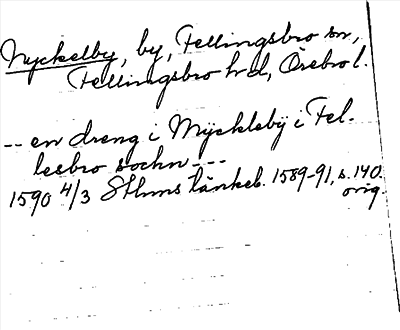 Nyckelby, by, Fellingsbro sn,
Fellingsbro hd, Örebro l.
-- en dreng i Myckleby i Fel-
lesbro sochn ---
1590 4/3 Sthms tänkeb. 1589-91, s. 140.
orig.